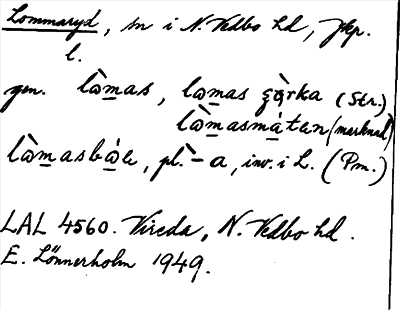 Lommaryd, sn i N. Vedbo hd, Jkp. l.
gen. lò̱mas, lo̱mas gò̱rka (Str.)
lò̱masmá̱ten (marknad)
lò̱masbó̱e, pl. -a, inv. i L. (Pm.)
LAL 4560. Vireda, N. Vedbo hd.
E. Lönnerholm 1949.